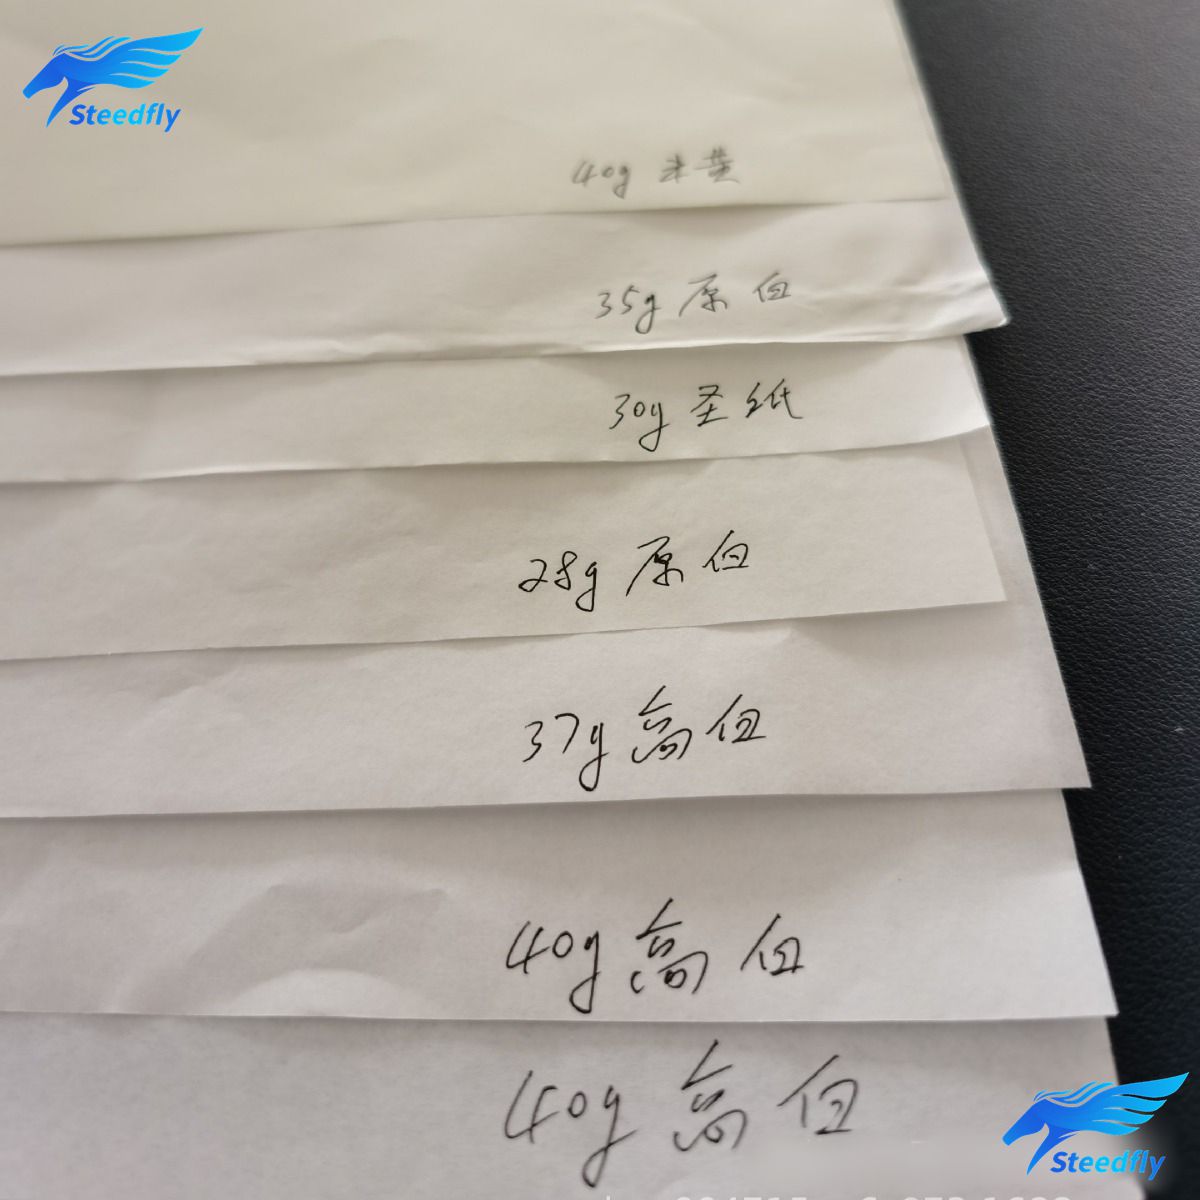 Steedfly
40g 米黄
35g 原白
30g 圣纸
28g 原白
37g 高白
40g 高白
40g 高白
Steedfly